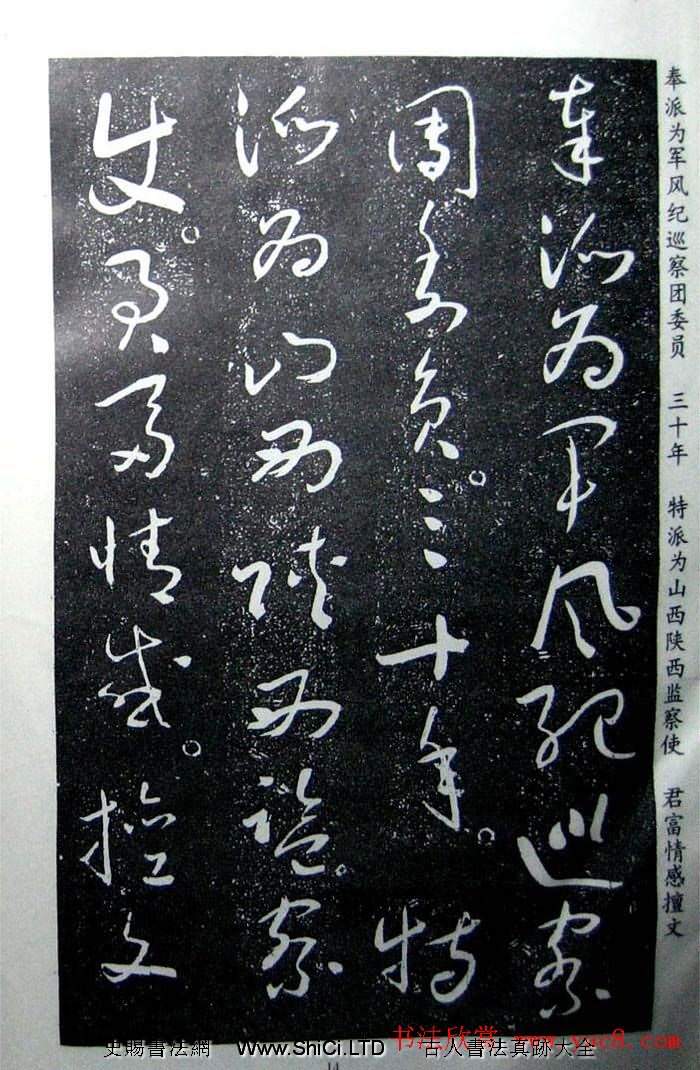 奉派为军风纪巡察团委员　三十年　特派为山西陕西监察使　君富情感擅文
奉派为军风纪巡察
团委员。三十年。特
派为山西陕西监察
使。君富情感。擅文
书法欣赏 www.yac8.com
史賜書法網　www.ShiCi.LTD　古人書法真跡大全
14